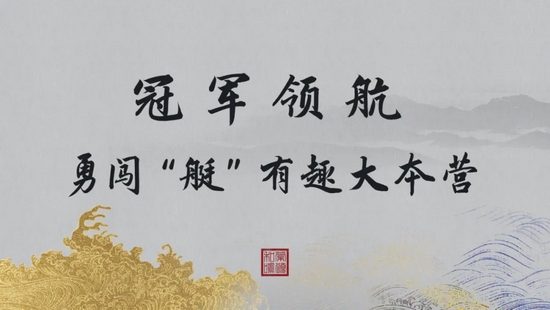 冠军领航
勇闯“艇”有趣大本营